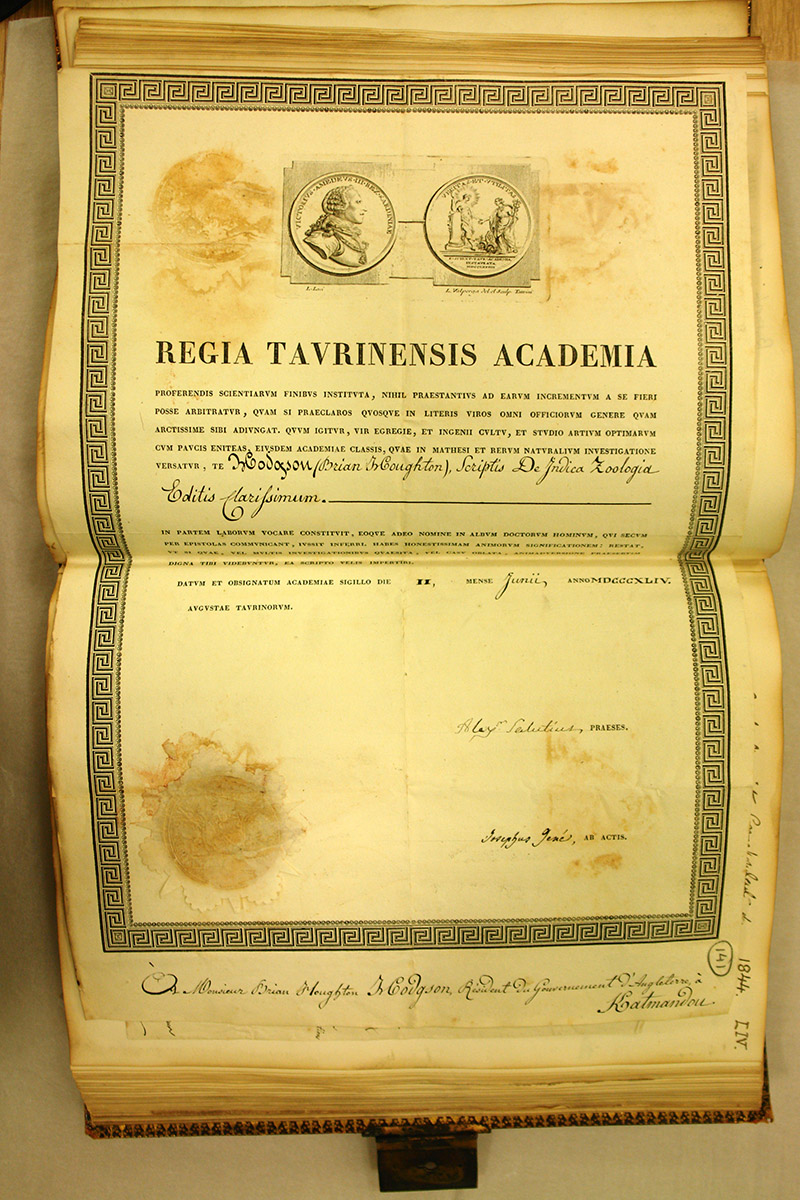 VICTORIVS AMEDEVS III REX SARDINIAE
VERITAS ET VTILITAS
L. Lavy
REGIA TAVRINENSIS ACADEMIA
PROFERENDIS SCIENTIARVM FINIBVS INSTITVTA, NIHIL PRAESTANTIVS AD EARVM INCREMENTVM A SE FIERI
POSSE ARBITRATVR, QVAM SI PRAECLAROS QVOSQVE IN LITERIS VIROS OMNI OFFICIORVM GENERE QVAM
ARCTISSIME SIBI ADIVNGAT. QVVM IGITVR, VIR EGREGIE, ET INGENII CVLTV, ET STVDIO ARTIVM OPTIMARVM
CVM PAVCIS ENITEAS, EIVSDEM ACADEMIAE CLASSIS, QVAE IN MATHESI ET RERVM NATVRALIVM INVESTIGATIONE
VERSATVR, TE Hodgson (Brian Houghton), Scriptis De Indica Zoologia
Editis Clarissimum.
IN PARTEM LABORVM VOCARE CONSTITVIT, EOQVE ADEO NOMINE IN ALBVM DOCTORVM HOMINVM, QVI SECVM
PER EPISTOLAS COMMVNICANT, IVSSIT INFERRI. HABES HONESTISSIMAM ANIMORVM SIGNIFICATIONEM: RESTAT,
VT SI QVAE, VEL MVLTIS INVESTIGATIONIBVS QVAESITA, VEL CASV OBLATA, ANIMADVERSIONE PRAESERTIM
DIGNA TIBI VIDEBVNTVR, EA SCRIPTO VELIS IMPERTIRI.
DATVM ET OBSIGNATVM ACADEMIAE SIGILLO DIE II, MENSE Junii, ANNO MDCCCXLIV.
AVGVSTAE TAVRINORVM.
Alex. Salutius, PRAESES.
Josephus Gené, AB ACTIS.
À Monsieur Brian Houghton Hodgson, Résident du Gouvernement d'Angleterre, à
Katmandou.
141
1844. LIV.